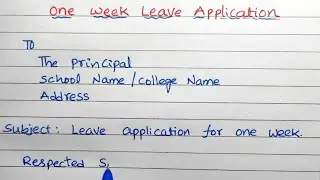 One Week Leave Application
To
The principal
School Name/College Name
Address
Subject: Leave application for one week.
Respected S